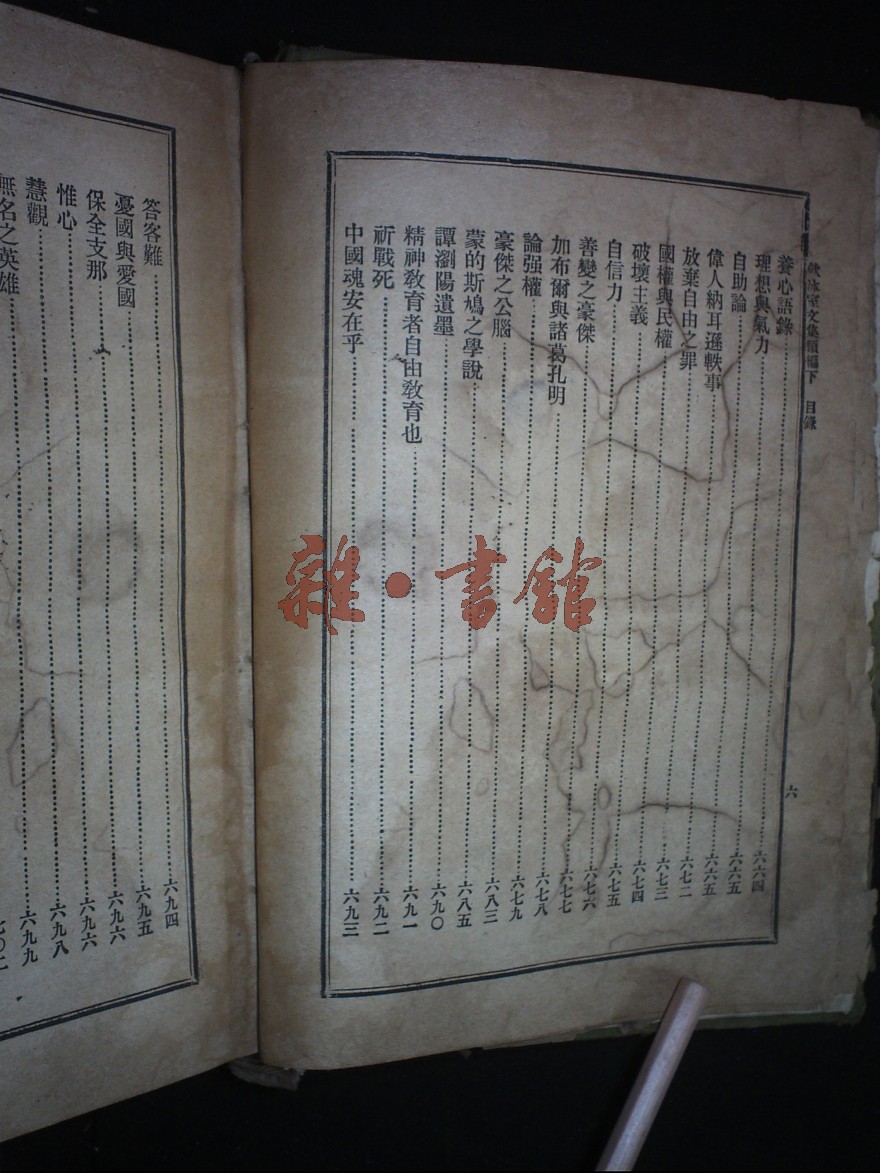 飲冰室文集類編下 目錄
六
養心語錄……六六四
理想與氣力……六六五
自助論……六六五
偉人納耳遜軼事……六七二
放棄自由之罪……六七三
國權與民權……六七四
破壞主義……六七五
自信力……六七六
善變之豪傑……六七七
加布爾與諸葛孔明……六七八
論强權……六七九
豪傑之公腦……六八三
蒙的斯鳩之學說……六八五
譚瀏陽遺墨……六九〇
精神教育者自由教育也……六九一
祈戰死……六九二
中國魂安在乎……六九三
答客難……六九四
憂國與愛國……六九五
保全支那……六九六
惟心……六九六
慧觀……六九八
無名之英雄……六九九
雜·書館